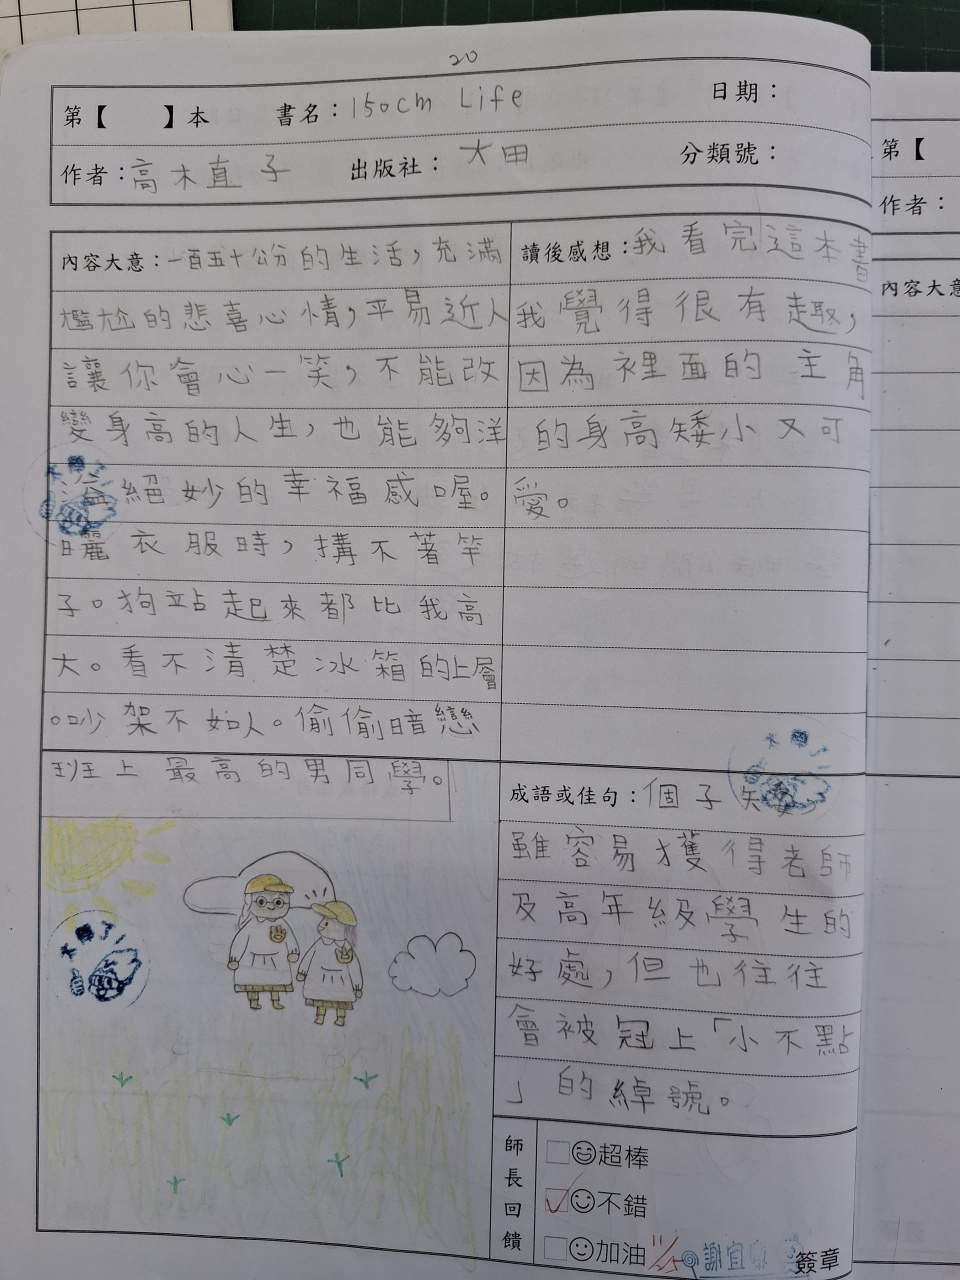 20
第【 】本 書名：150cm Life 日期：
作者：高木直子 出版社：大田 分類號：
內容大意：一百五十公分的生活，充滿
尷尬的悲喜心情，平易近人
讓你會心一笑，不能改
變身高的人生，也能夠洋
溢絕妙的幸福感喔。
曬衣服時，搆不著竿
子。狗站起來都比我高
大。看不清楚冰箱的上層
。吵架不如人。偷偷暗戀
班上最高的男同學。
讀後感想：我看完這本書
我覺得很有趣，
因為裡面的主角
的身高矮小又可
愛。
成語或佳句：個子矮
雖容易獲得老師
及高年級學生的
好處，但也往往
會被冠上「小不點
」的綽號。
師長回饋
超棒
不錯
加油 11/25 謝宜 簽章
太棒了!
太棒了!
太棒了!
第【
作者：
內容大意